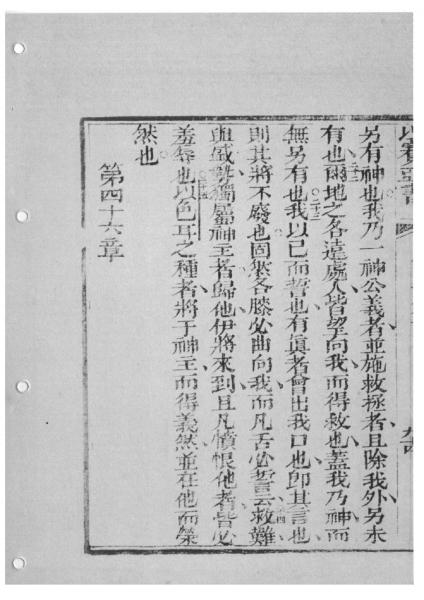 另有神也我乃一神公義者並施救拯者且除我外另未
有也爾地之各遠處人皆望向我而得救也蓋我乃神而
無另有也我以己而誓也有真者會出我口也卽其言也
則其將不廢也固𠅤各膝必曲向我而凡舌必誓云救難
及威勢獨屬神主者歸他伊將來到且凡憤恨他者皆必
羞辱也以色耳之種者將于神主而得義然並在他而榮
然也
第四十六章